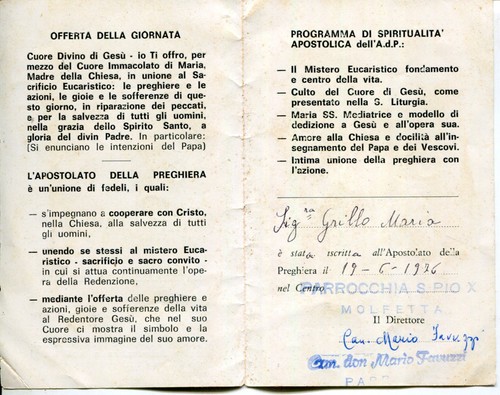 OFFERTA DELLA GIORNATA
Cuore Divino di Gesù - io Ti offro, per
mezzo del Cuore Immacolato di Maria,
Madre della Chiesa, in unione al Sa-
crificio Eucaristico: le preghiere e le
azioni, le gioie e le sofferenze di que-
sto giorno, in riparazione dei peccati,
e per la salvezza di tutti gli uomini,
nella grazia dello Spirito Santo, a
gloria del divin Padre. In particolare:
(Si enunciano le intenzioni del Papa)
L'APOSTOLATO DELLA PREGHIERA
è un'unione di fedeli, i quali:
— s'impegnano a cooperare con Cristo,
nella Chiesa, alla salvezza di tutti
gli uomini,
— unendo se stessi al mistero Euca-
ristico - sacrificio e sacro convito -
in cui si attua continuamente l'ope-
ra della Redenzione,
— mediante l'offerta delle preghiere e
azioni, gioie e sofferenze della vita
al Redentore Gesù, che nel suo
Cuore ci mostra il simbolo e la
espressiva immagine del suo amore.
PROGRAMMA DI SPIRITUALITA'
APOSTOLICA dell'A.d.P.:
— Il Mistero Eucaristico fondamento
e centro della vita.
— Culto del Cuore di Gesù, come
presentato nella S. Liturgia.
— Maria SS. Mediatrice e modello di
dedizione a Gesù e all'opera sua.
— Amore alla Chiesa e docilità all'in-
segnamento del Papa e dei Vescovi.
— Intima unione della preghiera con
l'azione.
Sig.ra Grillo Maria
è stata iscritta all'Apostolato della
Preghiera il 19-6-1986
nel Centro PARROCCHIA S. PIO X
MOLFETTA
Il Direttore
Can. Mario Favuzzi
Can. don Mario Favuzzi